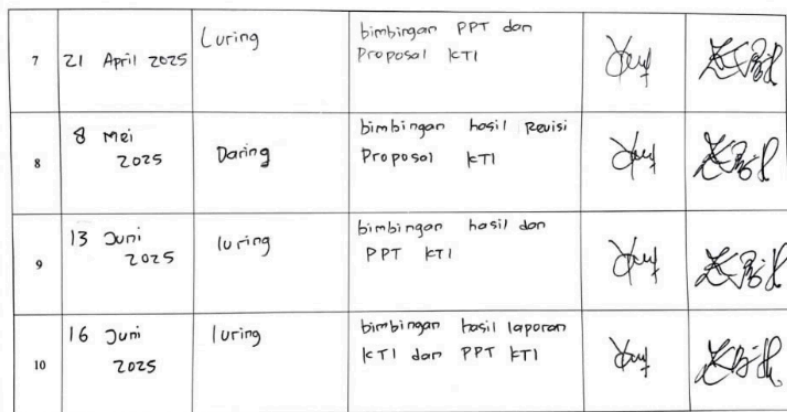 7 21 April 2025 Luring bimbingan PPT dan
Proposal KTI
8 8 Mei
2025 Daring bimbingan hasil Revisi
Proposal KTI
9 13 Juni
2025 luring bimbingan hasil dan
PPT KTI
10 16 Juni
2025 luring bimbingan hasil laporan
KTI dan PPT KTI